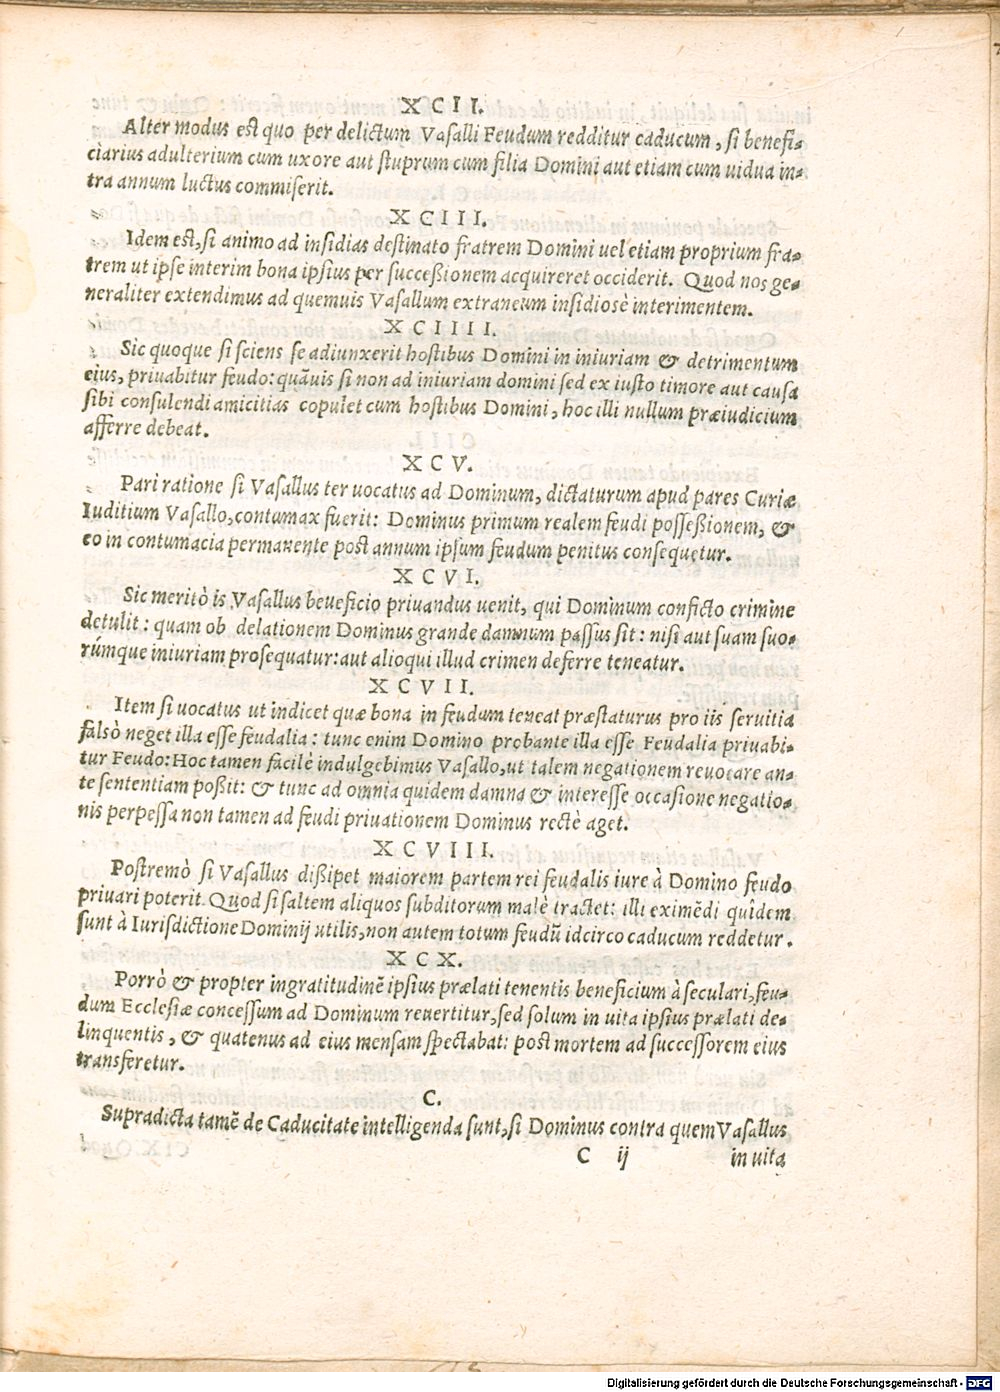 XCII.
Alter modus est quo per delictum Vasalli Feudum redditur caducum, si benefi-
ciarius adulterium cum uxore aut stuprum cum filia Domini aut etiam cum uidua in-
tra annum luctus commiserit.
XCIII.
Idem est, si animo ad insidias destinato fratrem Domini uel etiam proprium fra-
trem ut ipse interim bona ipsius per successionem acquireret occiderit. Quod nos ge-
neraliter extendimus ad quemuis Vasallum extraneum insidiosè interimentem.
XCIIII.
Sic quoque si sciens se adiunxerit hostibus Domini in iniuriam & detrimentum
eius, priuabitur feudo: quãuis si non ad iniuriam domini sed ex iusto timore aut causa
sibi consulendi amicitias copulet cum hostibus Domini, hoc illi nullum præiudicium
afferre debeat.
XCV.
Pari ratione si Vasallus ter uocatus ad Dominum, dictaturum apud pares Curiæ
Iuditium Vasallo, contumax fuerit: Dominus primum realem feudi possessionem, &
eo in contumacia permanente post annum ipsum feudum penitus consequetur.
XCVI.
Sic meritò is Vasallus beueficio priuandus uenit, qui Dominum conficto crimine
detulit: quam ob delationem Dominus grande damnum passus sit: nisi aut suam suo-
rúmque iniuriam prosequatur: aut alioqui illud crimen deferre teneatur.
XCVII.
Item si uocatus ut indicet quæ bona in feudum teneat præstaturus pro iis seruitia
falsò neget illa esse feudalia: tunc enim Domino probante illa esse Feudalia priuabi-
tur Feudo: Hoc tamen facilè indulgebimus Vasallo, ut talem negationem reuocare an-
te sententiam possit: & tunc ad omnia quidem damna & interesse occasione negatio-
nis perpessa non tamen ad feudi priuationem Dominus rectè aget.
XCVIII.
Postremò si Vasallus dissipet maiorem partem rei feudalis iure à Domino feudo
priuari poterit. Quod si saltem aliquos subditorum malè tractet: illi eximẽdi quidem
sunt à Iurisdictione Dominij utilis, non autem totum feudũ idcirco caducum reddetur.
XCX.
Porrò & propter ingratitudinẽ ipsius prælati tenentis beneficium à seculari, feu-
dum Ecclesiæ concessum ad Dominum reuertitur, sed solum in uita ipsius prælati de-
linquentis, & quatenus ad eius mensam spectabat: post mortem ad successorem eius
transferetur.
C.
Supradicta tamẽ de Caducitate intelligenda sunt, si Dominus contra quem Vasallus
C ij in uita
Digitalisierung gefördert durch die Deutsche Forschungsgemeinschaft - DFG